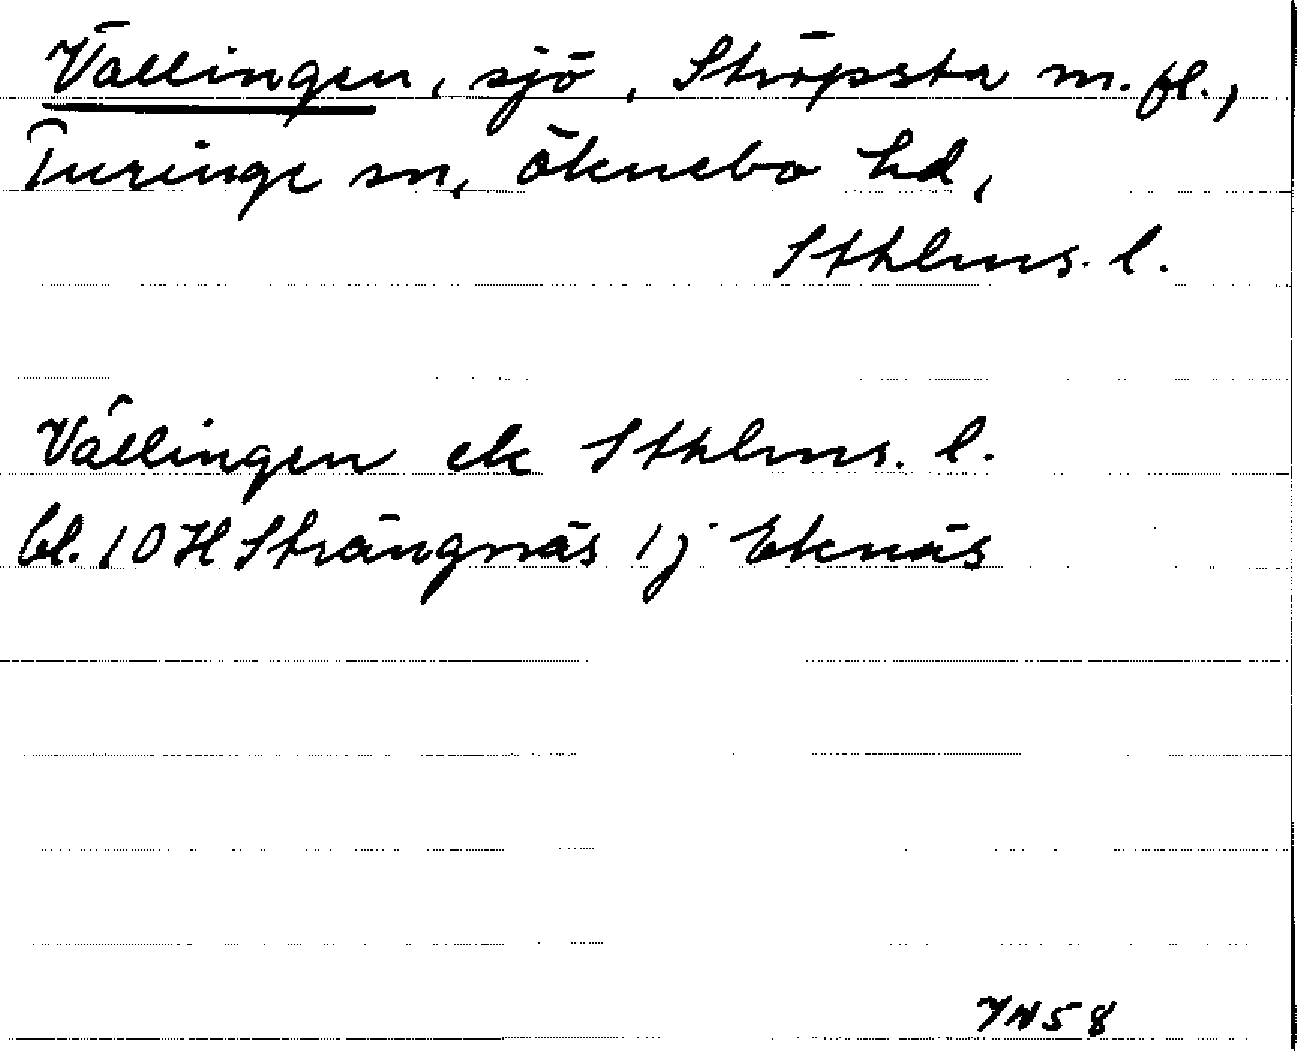 Vällingen, sjö, Ströpsta m. fl.,
Turinge sn, Öknebo hd,
Sthlms. l.
Vällingen ek Sthlms. l.
bl. 10 H Strängnäs 1 j Eknäs